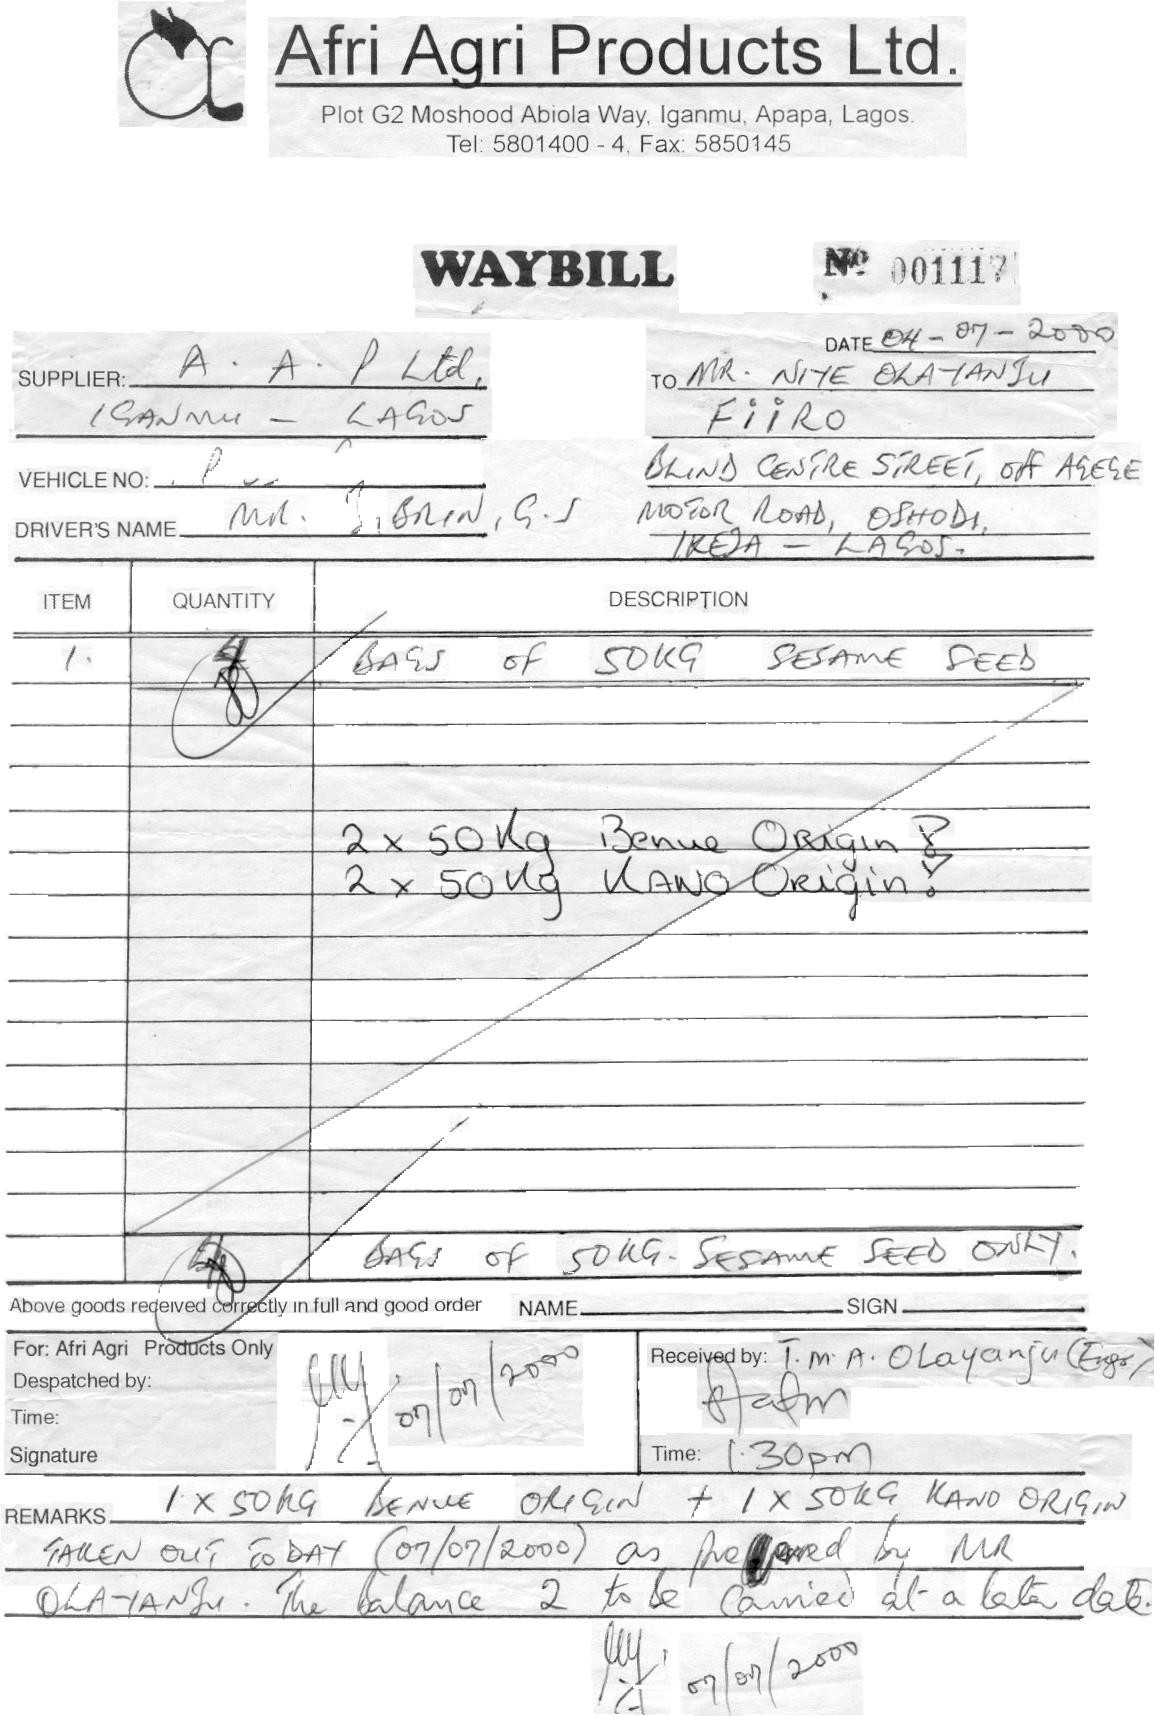 Afri Agri Products Ltd.
Plot G2 Moshood Abiola Way, Iganmu, Apapa, Lagos.
Tel: 5801400 - 4, Fax: 5850145
WAYBILL
No 001117
DATE 04-07-2000
SUPPLIER: A. A. P Ltd,
IGANMU - LAGOS
TO MR. NIYE OLAYANJU
FIIRO
BLIND CENTRE STREET, off AGEGE
MOTOR ROAD, OSHODI,
IKEJA - LAGOS.
VEHICLE NO:
DRIVER'S NAME MR. BRIN, G.S
ITEM QUANTITY DESCRIPTION
1. BAGS OF 50KG SESAME SEED
2 x 50Kg Benue Origin
2 x 50Kg KANO Origin
BAGS OF 50KG. SESAME SEED ONLY.
Above goods received correctly in full and good order NAME SIGN
For: Afri Agri Products Only
Despatched by:
Time:
Signature
07/07/2000
Received by: T.M.A. Olayanju (Engr)
Time: 1.30pm
REMARKS 1 X 50KG BENUE ORIGIN + 1 X 50KG KANO ORIGIN
TAKEN OUT TODAY (07/07/2000) as by MR
OLAYANJU. The balance 2 to be carried at a later date.
07/07/2000